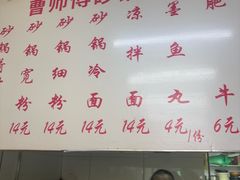 曹师傅砂
砂锅宽粉 14元
砂锅细粉 14元
砂锅冷面 14元
凉拌面 14元
墨鱼丸 4元/份
肥牛 6元